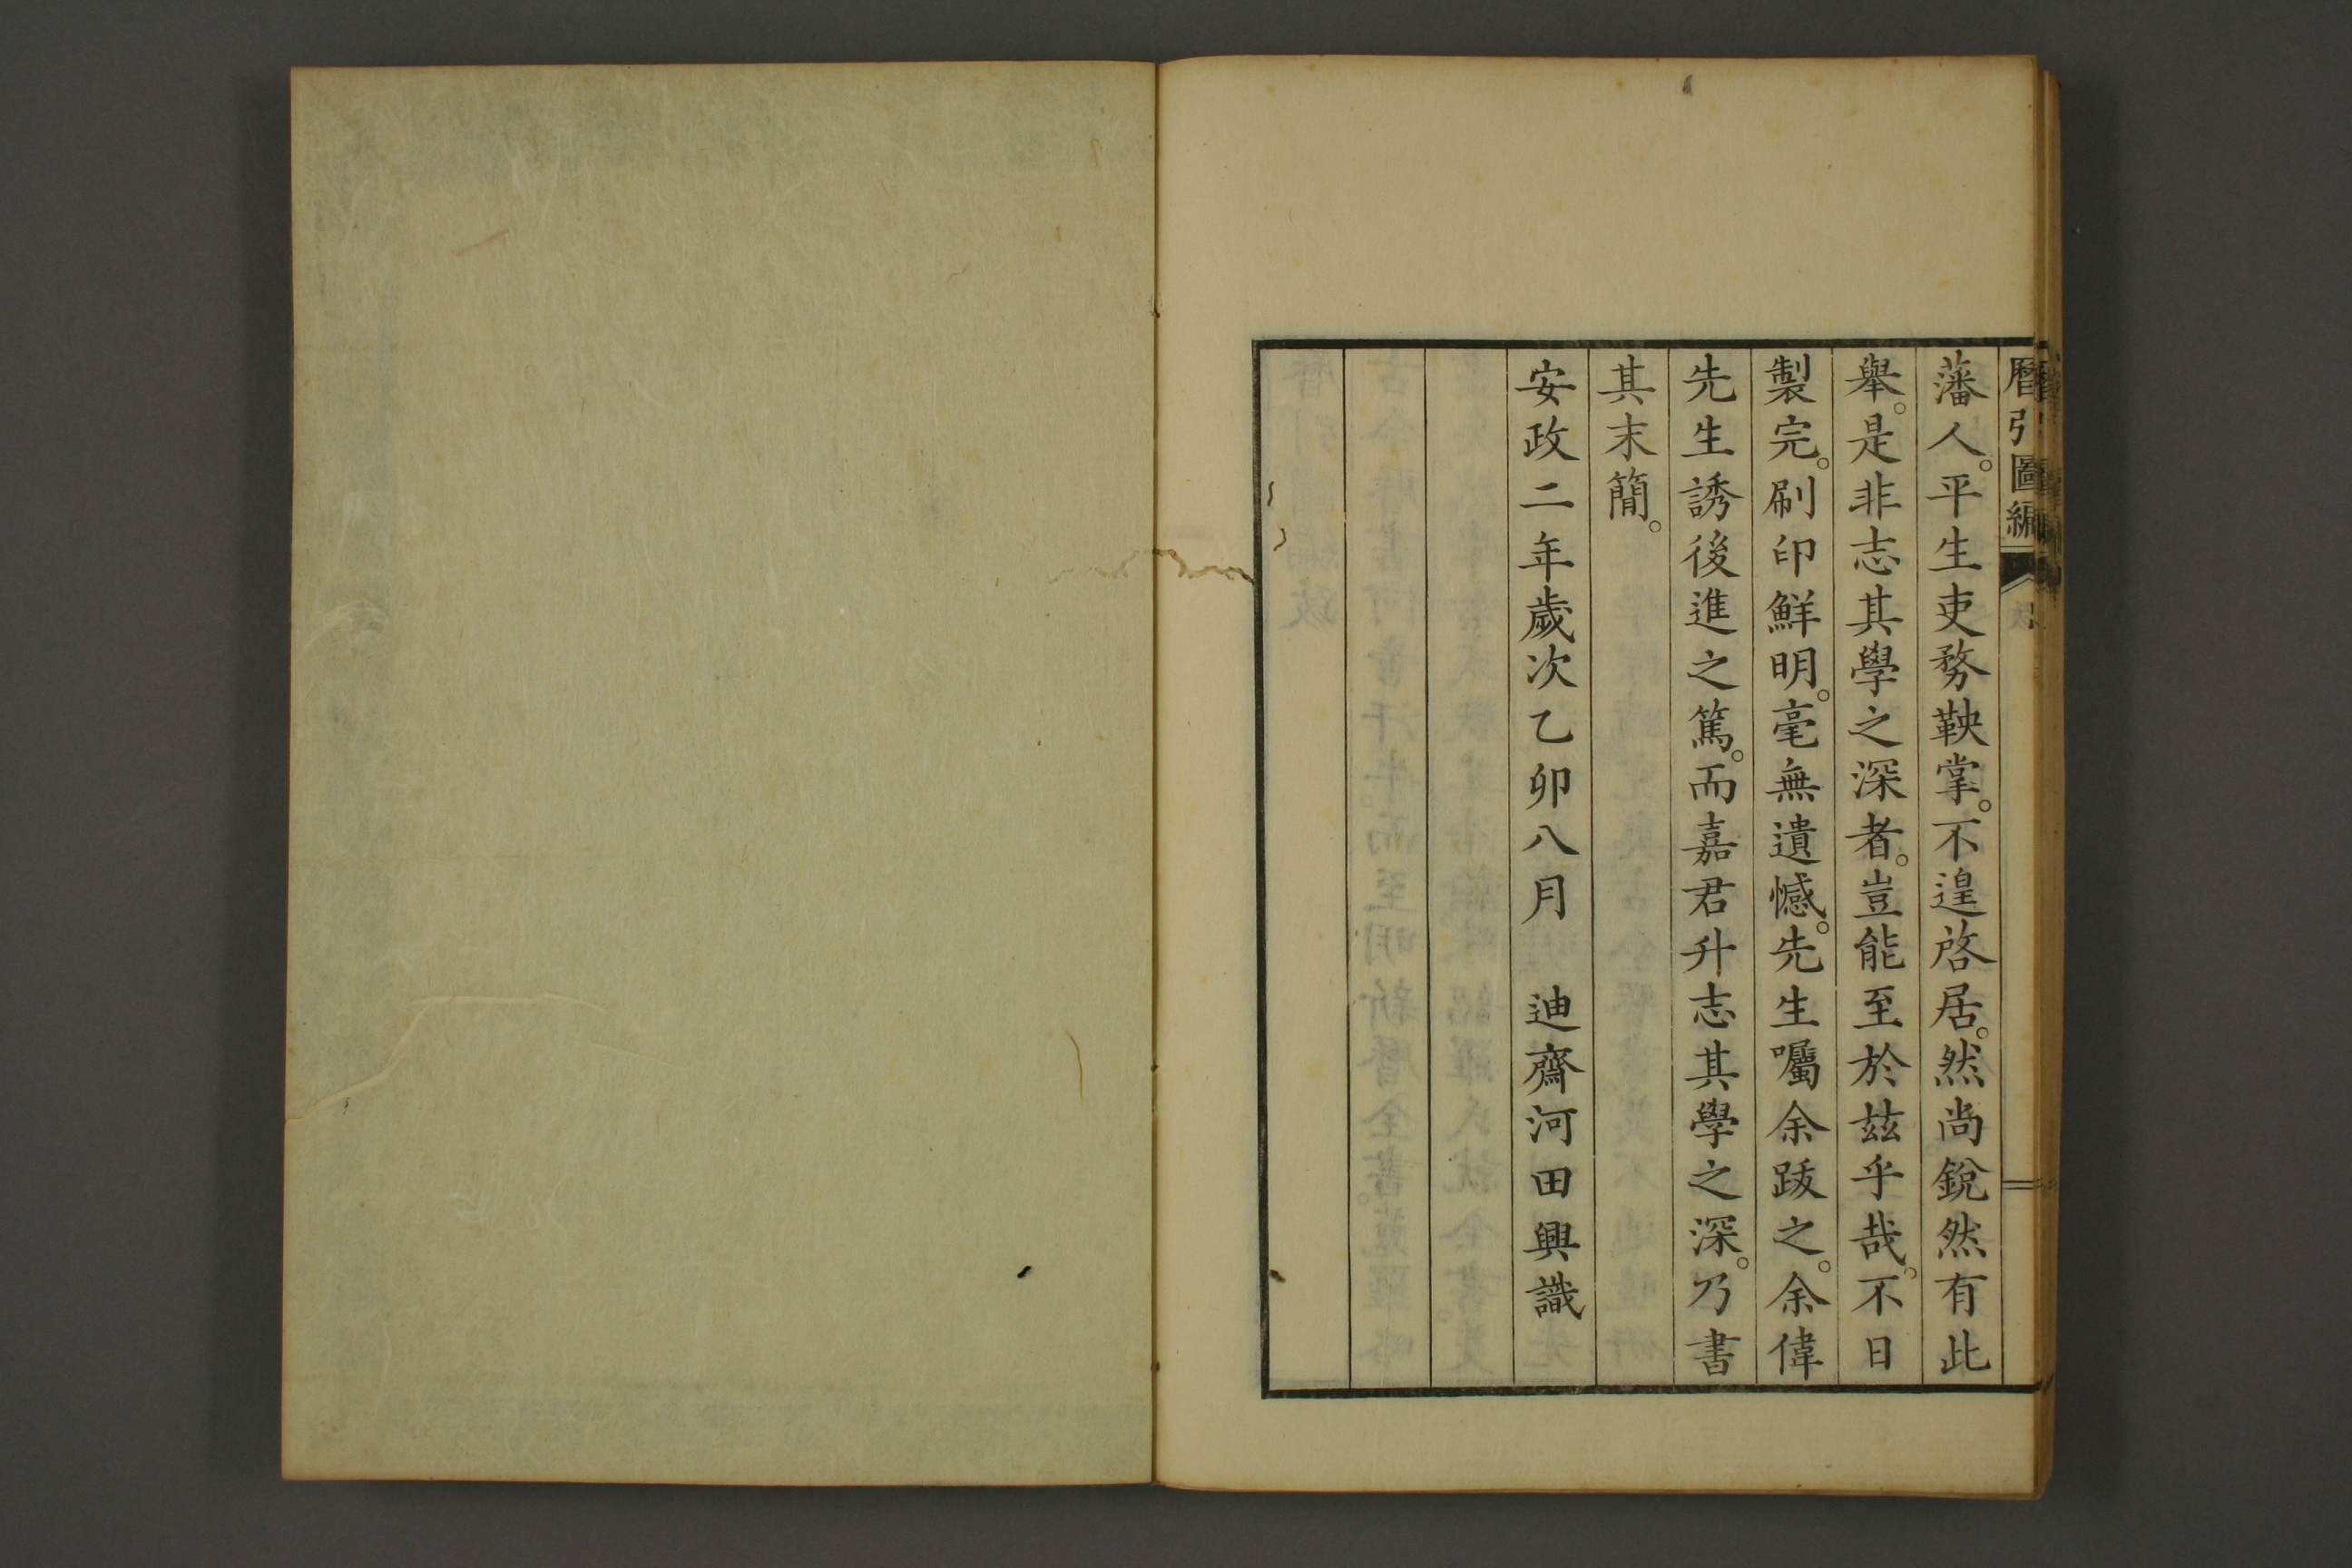 曆引圖編
藩人。平生吏務鞅掌。不遑啓居。然尚銳然有此
舉。是非志其學之深者。豈能至於茲乎哉。不日
製完。刷印鮮明。毫無遺憾。先生囑余跋之。余偉
先生誘後進之篤。而嘉君升志其學之深。乃書
其末簡。
安政二年歲次乙卯八月　迪齋河田興識